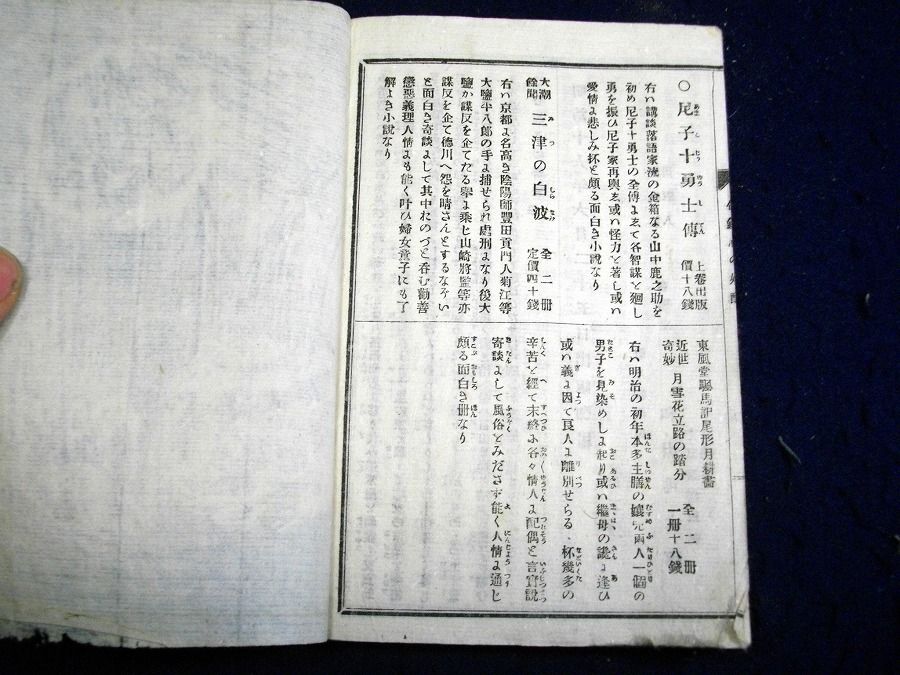 ○尼子十勇士傳 上巻出版 價十八錢
右ハ講談落語家流の金箱なる山中鹿之助を
初め尼子十勇士の全傳にて各智謀を廻し
勇を振ひ尼子家再興或ハ怪力を著し或ハ
愛情に悲しみ抔と頗る面白き小説なり
大潮餘聞 三津の白波 全二冊 定價四十錢
右ハ京都に名高き陰陽師豐田貢門人菊江等
大鹽平八郎の手に捕せられ處刑になり後大
鹽が謀反を企てたる擧に乘じ山崎將監等亦
謀反を企て徳川へ怨を晴さんとするなぞい
と面白き奇談にして其中おのづと呑む勸善
懲惡義理人情にも能く叶ひ婦女童子にも了
解よき小説なり
東風堂 馬記尾形月耕畵
近世奇妙 月雪花立路の踏分 全二冊 一冊十八錢
右ハ明治の初年本多主膳の孃 兩人一個の
男子を見染めしに起り或ハ繼母の讒に逢ひ
或ハ義に因て良人に離別せらる、杯幾多の
辛苦を經て末終に各々情人に配偶と言
寄談にして風俗をみださず能く人情に通じ
頗る面白き冊なり